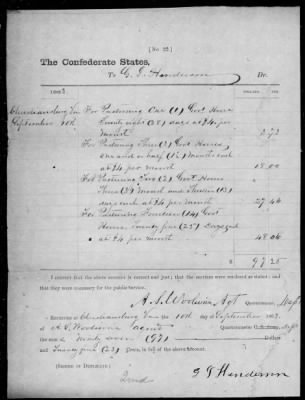 [No. 22.]
The Confederate States,
To G. T. Henderson Dr.
1863 DOLLARS.
Christiansburg Va For Pasturing One (1) Govt Horse
September 10th Twenty eight (28) days at $4 per
month 3 73
For Pasturing Three (3) Govt Horses
one and a half (1½) months each
at $4 per month 18.00
For Pasturing Two (2) Govt Horses
Three (3) Month and
days each at $4 per month 27.46
For Pasturing Fourteen (14) Govt
Horses twenty five (25) Days each
at $4 per month
$ 97 25
I certify that the above account is correct and just; that the services were rendered as stated; and
that they were necessary for the public service.
A. A. Woodwin Agt Quartermaster.
Received at Christiansburg Va the 10th of September 1863, of
A. A. Woodwin agent Quartermaster C. S. Army,
the sum of Ninety seven (97) Dollars
and Twenty five (25) Cents, in full of the above account.
(SIGNED IN DUPLICATE.)
2nd G T Henderson